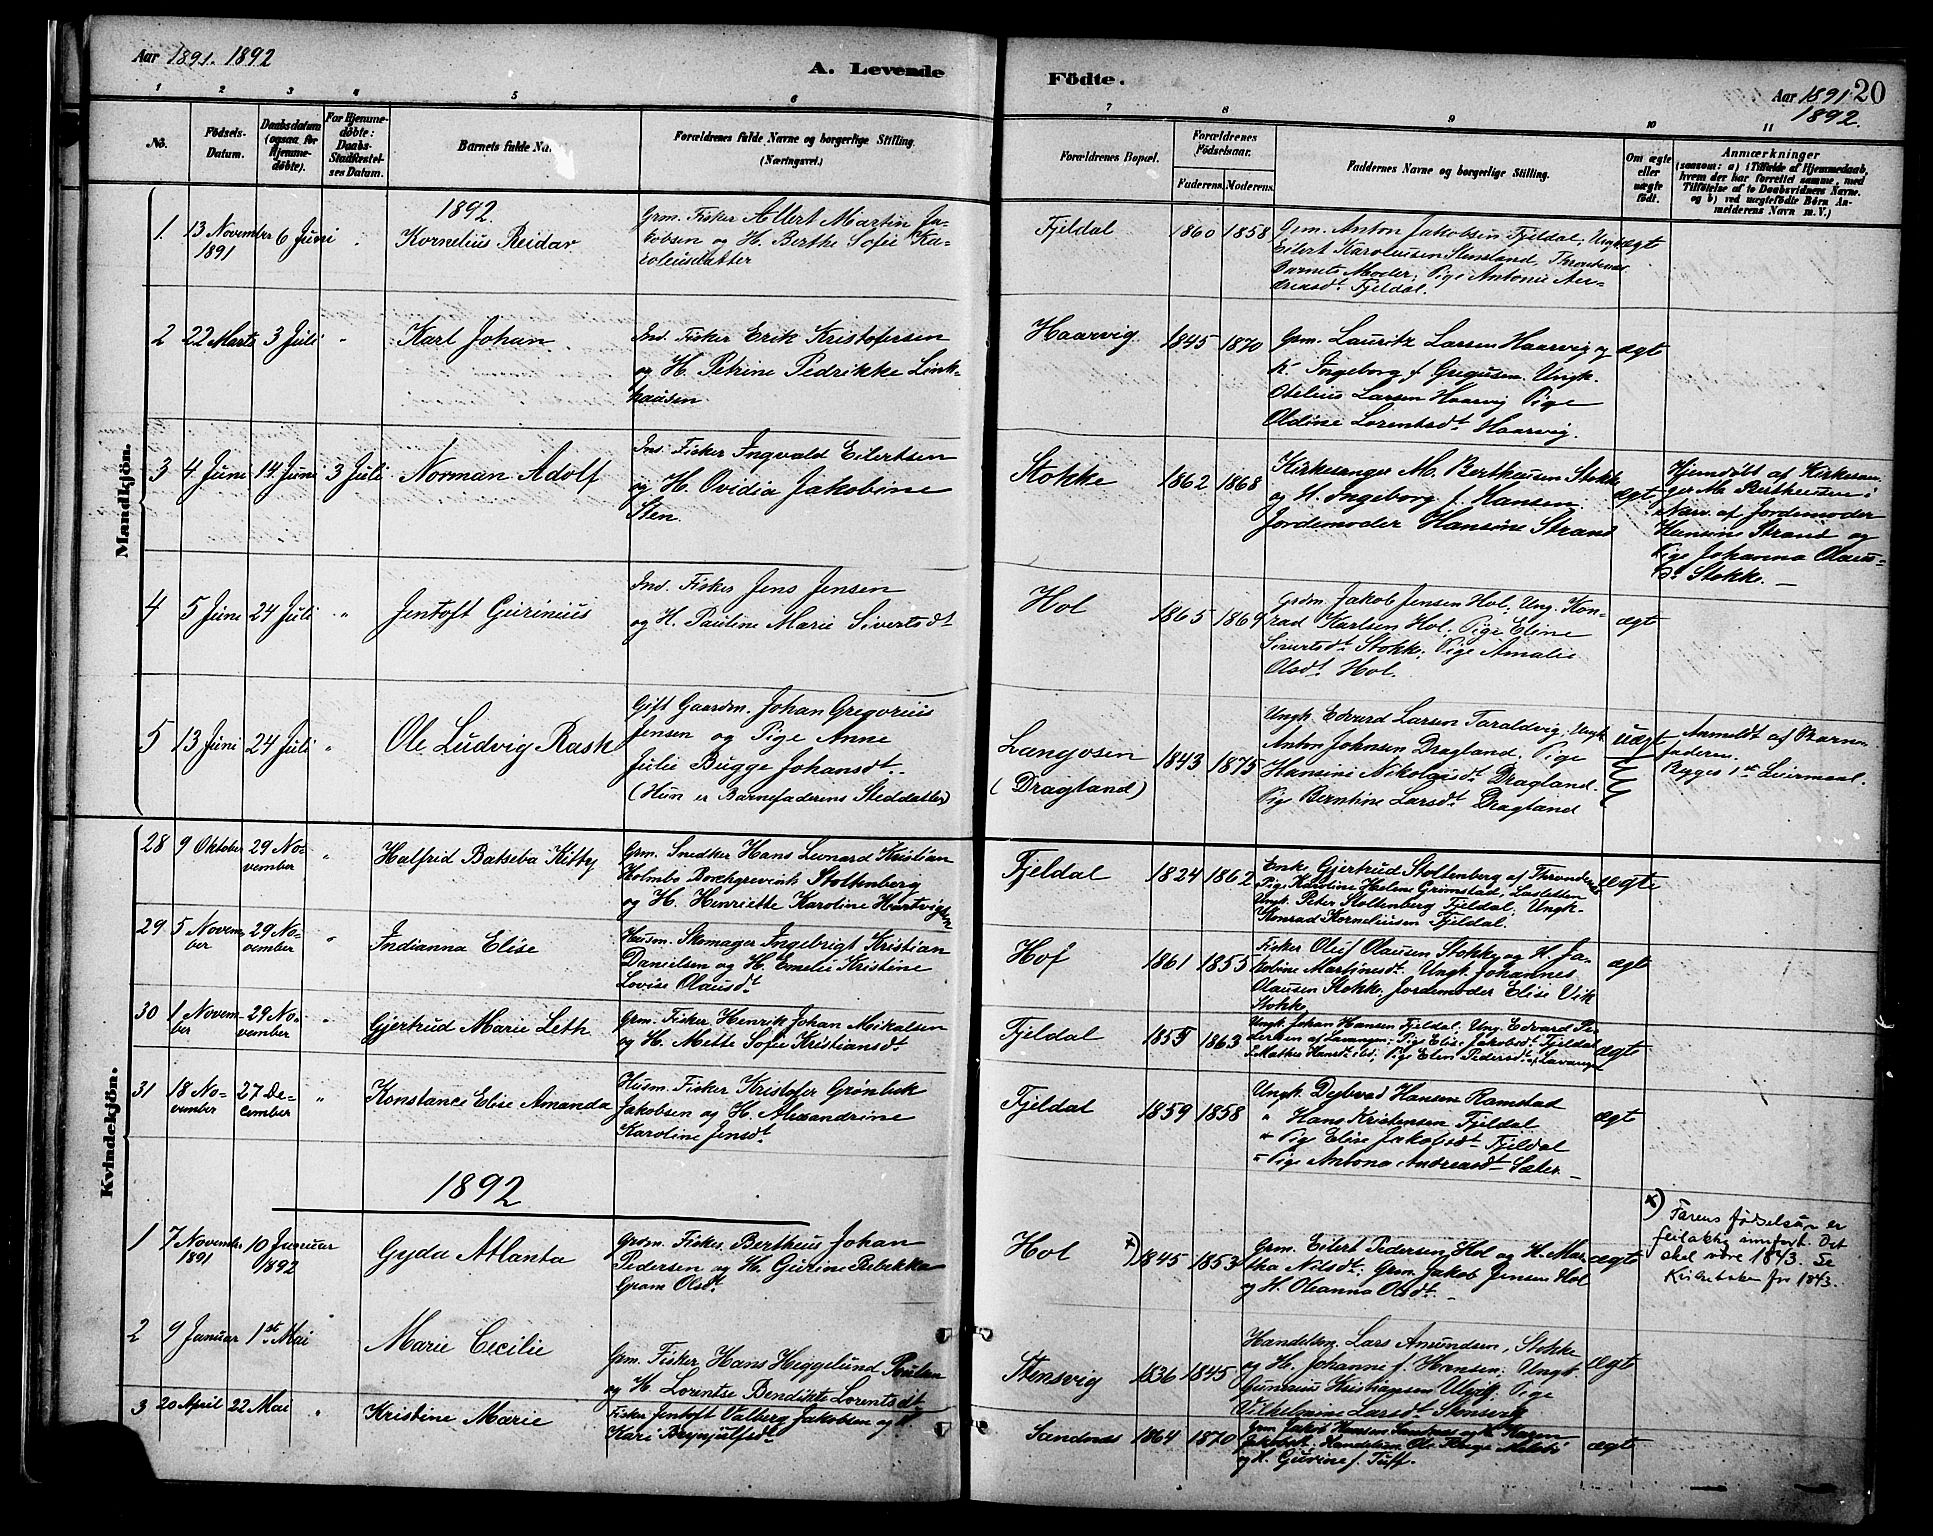 Aar 1891. 1892
A. Levende
Födte.
Aar 1891 20
1892.
1 2 3 4 5 6 7 8 9 10 11
No.
Födsels-
Datum.
Daabsdatum
(ogsaa for
Hjemme-
døbte).
For Hjemme-
døbte:
Daabs-
Stadfæstel-
ses Datum.
Barnets fulde Na
Forældrenes fulde Navne og borgerlige Stilling.
(Næringsvei.)
Forældrenes Bopæl.
Forældrenes
Födselsaar.
Faderens. Moderens.
Faddernes Navne og borgerlige Stilling.
Om ægte
eller
uægte
födt.
Anmærkninger
(saasom: a) i Tilfælde af Hjemmedaab,
hvem der har forrettet samme, med
Tilföielse af to Daabsvidners Navne.
og b) ved uægtefödte Börn An-
melderens Navn m. V.)
Mandkjön.
1892.
1. 13 November 1891
6 Juni
Kornelius Reidar
Grm. Fisker Albert Martin Ja-
kobsen og H. Berthe Sofie Ka-
roleusdatter
Fjeldal
1860 1858
Grm. Anton Jakobsen Fjeldal, Ungk.
Eilert Karoleusen Stensland, Throndenes
Barnets Moder; Pige Antonie An-
dreasdt. Fjeldal.
ægt
2 22 Marts 3 Juli "
Karl Johan
Ind. Fisker Erik Kristofersen
og H. Petrine Pedrikke Link-
hausen
Haarvig
1845 1870
Grm. Lauritz Larsen Haarvig og
H. Ingeborg f. Gregusen. Ungk.
Otelius Larsen Haarvig Pige
Oldine Lorentsdt. Haarvig.
ægte
3 4 June 14 Juni 3 Juli
Norman Adolf
Ins. Fisker Ingvald Eilertsen
og H. Ovidia Jakobine
Sten.
Stokke
1862 1868
Kirkesanger M. Bertheusen Stokke
og H. Ingeborg f. Hansen.
Jordemoder Hansine Strand
ægt
Hjemdøbt af Kirkesan-
ger M. Bertheusen i
Nærv. af Jordemoder
Hansine Strand og
Pige Johanna Olaus-
dt. Stokke. —
4 5 June 24 Juli "
Jentoft Gurinius
Ind. Fisker Jens Jensen
og H. Pauline Marie Sivertsdt
Hol
1865 1869
Grdm. Jakob Jensen Hol, Ung. Kon-
rad Karlsen Hol; Pige Eline
Sivertsdt. Stokke; Pige Amalie
Olsdt. Hol.
ægt
5 13 Juni 24 Juli "
Ole Ludvig Rask
Gift Gaardm. Johan Gregorius
Jensen og Pige Anne
Julie Bugge Johansdt.
(Hun er Barnefaderens Steddatter)
Langvosen
(Dragland)
1843 1875
Ungk. Edvard Larsen Taraldvig; Ungk.
Anton Johnsen Dragland; Pige
Hansine Nikolaisdt. Dragland.
Pige Berntine Larsdt. Dragland
uægt
Anmeldt af Barne-
faderen.
Begges 1ste Leiermaal.
Kvindekjön.
28 9 Oktober 29 No-
vember "
Halfrid Batseba Kitty
Grm. Snedker Hans Leonard Kristian
Holmbo Borchgrevink Stoltenberg
og H. Henriette Karoline Hartvigsen
Fjeldal
1824 1862
Enke Gjertrud Stoltenberg af Throndenes
Pige Karoline Helene Grimstad,
Ungk. Peter Stoltenberg Fjeldal; Ungk.
Konrad Korneliussen Fjeldal.
ægte
29 5 Novem-
ber 29 No-
vember "
Indianna Elise
Husm. Skomager Ingebrigt Kristian
Danielsen og H. Emelie Kristine
Lovise Olausdt.
Hof
1861 1855
Fisker Oluf Olausen Stokke og H. Ja-
kobine Martinesdt. Ungk. Johannes
Olausen Stokke. Jordemoder Elise Vik
Stokke
ægt
30 1 Novem-
ber 29 No-
vember "
Gjertrud Marie Leth
Grm. Fisker Henrik Johan Meikalsen
og H. Mette Sofie Kristiansdt
Fjeldal
1855 1863
Ungk. Johan Hansen Fjeldal; Ung. Edvard Pe-
dersen af Lavangen; Pig. Elise Jakobsdt. Fjeldal
Mathis Hansdt. ; Pige Elen Pedersdt. af Lavangen
ægte
31 18 No-
vember 27 De-
cember "
Konstance Elise Amanda
Husm. Fisker Kristofer Grønbek
Jakobsen og H. Alexandrine
Karoline Jensdt.
Fjeldal
1859 1858
Ungk. Hansen Ramstad
" Hans Kristensen Fjeldal
" Pige Elise Jakobsdt. Fjeldal
" Pige Antona Andreasdt. Sæter —
ægt
1892
1 7 November 1891 10 Januar 1892
Gyda Atlanta
Grdm. Fisker Bertheus Johan
Pedersen og H. Gurine Rebekka
Gram Olsdt.
Hol
x) 1845 1853
Grm. Eilert Pedersen Hol og H. Mar-
tha Nilsdt; Grm. Jakob Jensen Hol
og H. Oleanna Olsdt. —
ægte
x) Farens fødselsår er
feilaktig innført. Det
skal være 1843. Se
Kirkeboken for 1843.
2 9 Januar 1st Mai
Marie Cecilie
Grm. Fisker Hans Heggelund Poulsen
og H. Lorentse Bendikte Lorentsdt
Stensvig
1836 1845
Handelsm. Lars Amundsen, Stokke
og H. Johanne f. Hansen; Ungk.
Gunerius Kristiansen Ulvig; Pige
Vilhelmine Larsdt. Stensvig
ægte
3 20 April 22 Mai "
Kristine Marie
Fisker Jentoft Valberg Jakobsen og H.
Kari Brynjulfsdt.
Sandnes
1864 1870
Grm. Jakob Hansen Sandnes og H. Karen
Jakobsdt; Handelsm. Ole Melchi
og H. Gurine f. Tuff.
ægt